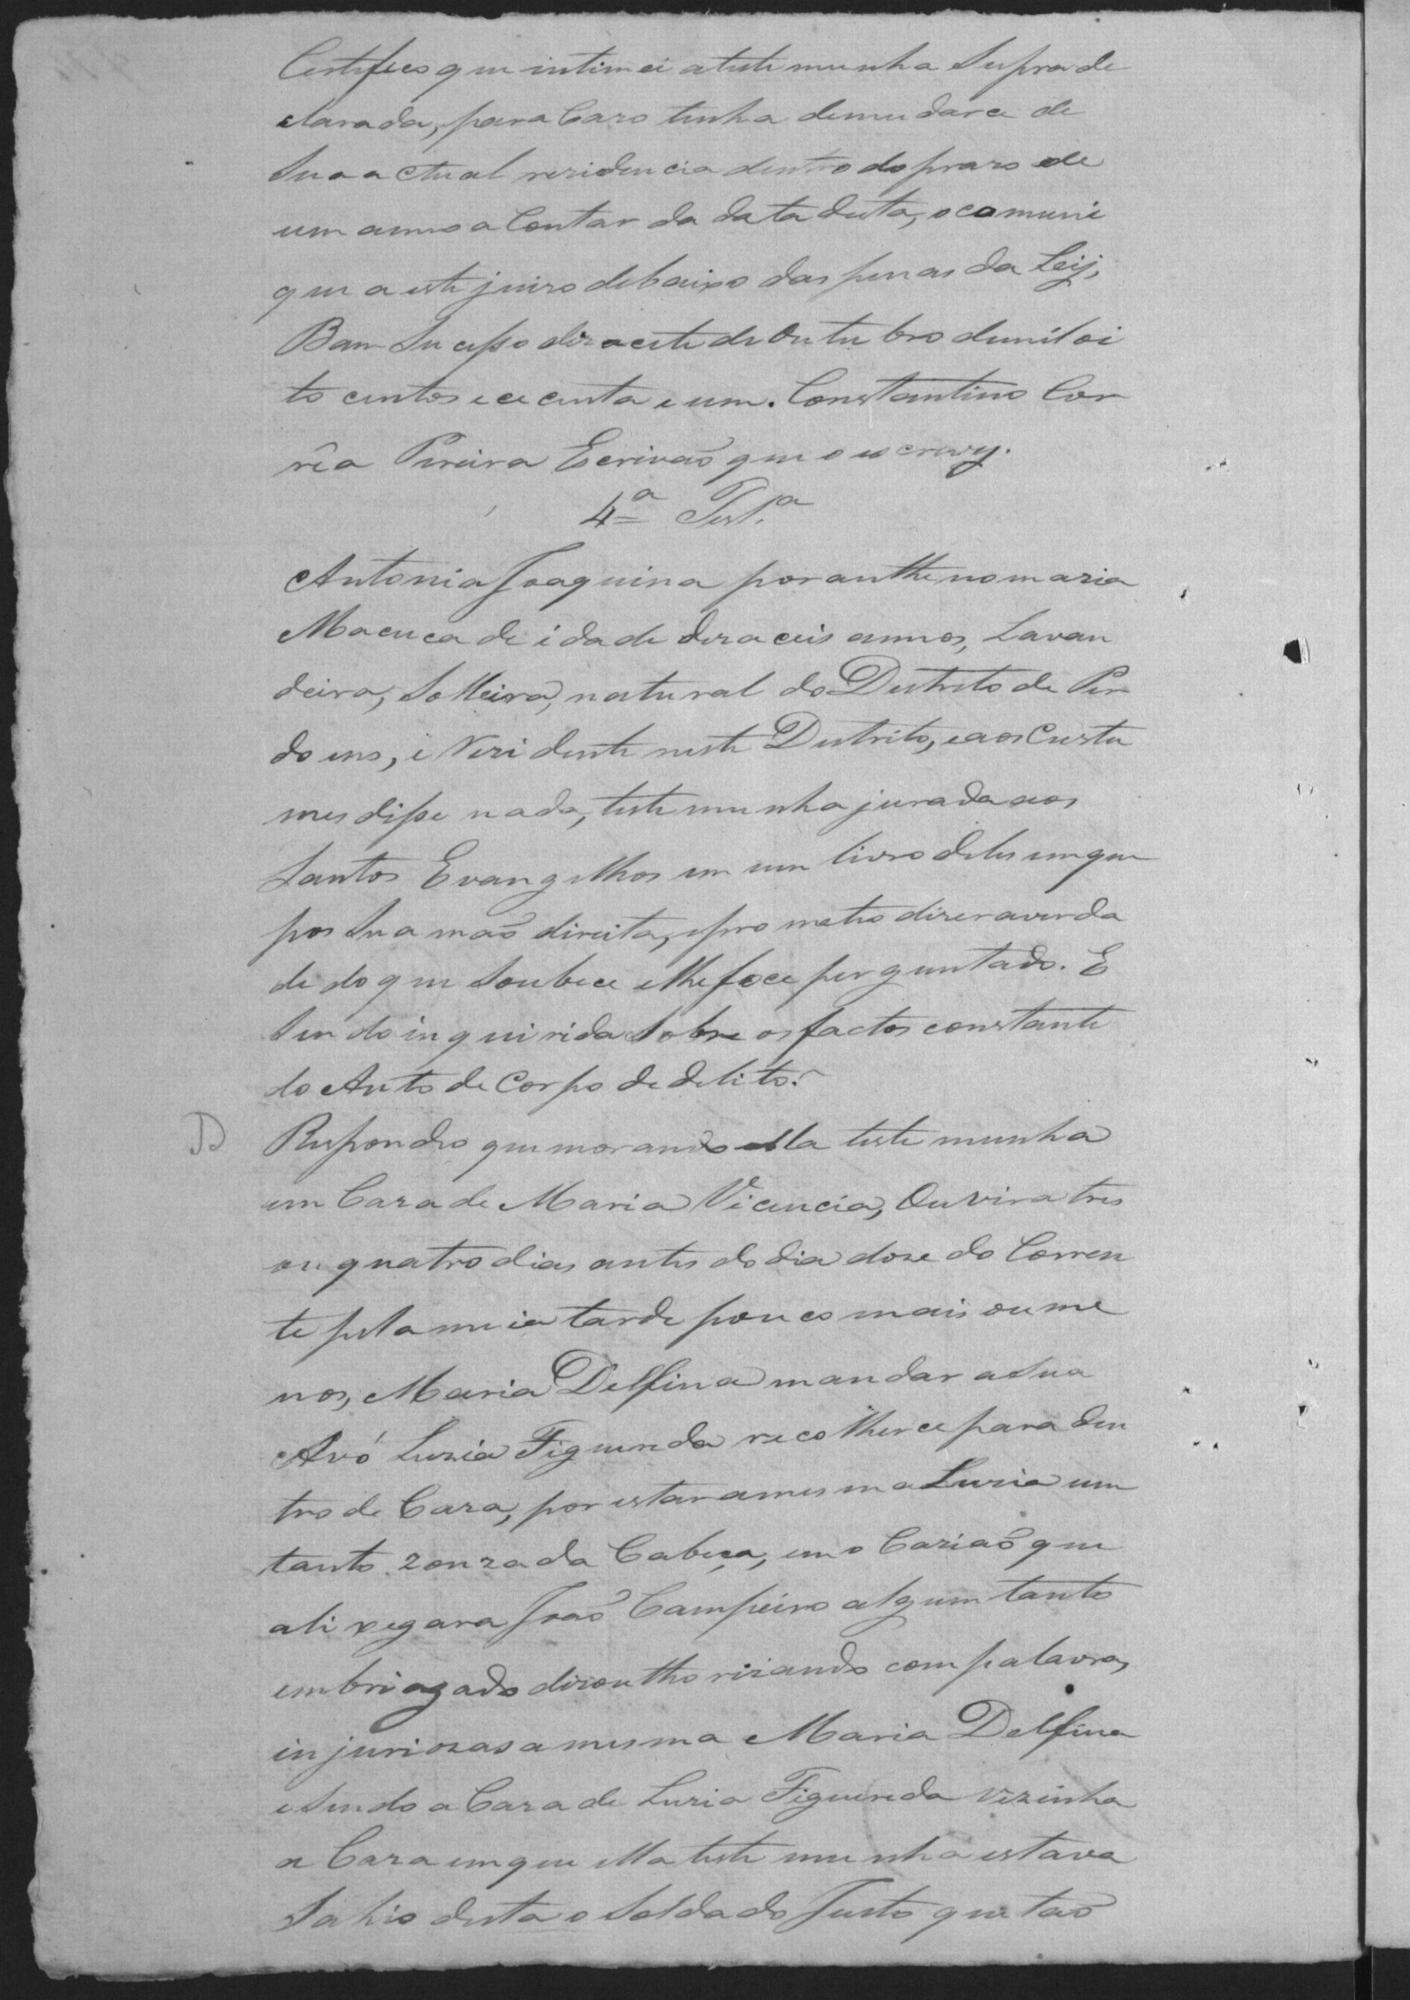 Certifico que intimei a testemunha Suprade
clarada, para Cazo tenha de mudarce de
Sua actual rezidencia dentro do prazo de
um anno a Contar da data desta, o comuni
que a este juizo debaixo das penas da Leij,
Bom Sucesso dizacete de Outubro de mil oi
to centos e cecenta e um. Constantino Cor
rêa Pereira Escrivaõ que o escrevy.
4ª Test.ª
Antonia Joaquina por anthenomazia
Macuca de idade dezaceis annos, Lavan
deira, Solteira, natural do Destrito de Per
doens, e Rezidente neste Destrito, e aos Custu
mes disse nada, testemunha jurada aos
Santos Evangelhos em um livro deles em que
pos Sua maõ direita, e prometeo dizer a verda
de do que Soubece e lhe foce perguntado. E
Sendo inquirida Sobre os factos constante
do Auto de Corpo de delito?
D Respondeo que morando ella testemunha
em Caza de Maria Vicencia, Ouvira tres
ou quatro dias antes do dia doze do Corren
te pela meia tarde pouco mais ou me
nos, Maria Delfina mandar a Sua
Avó Luzia Figuereda recolherce para den
tro de Caza, por estar a mesma Luzia um
tanto zonza da Cabeça, e no Caziaõ que
ali xegara Joaõ Campeiro algum tanto
embriagado dizouthorizando com palavras
injuriozas a mesma Maria Delfina
e Sendo a Caza de Luzia Figuereda vezinha
a Caza em que ella testemunha estava
Sahio desta o Soldado Justo que taõ